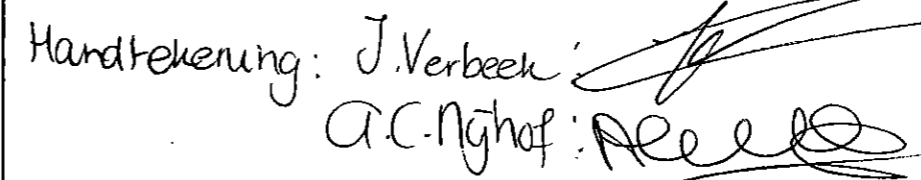 Handtekening: J. Verbeek:
A.C. Nijhof: